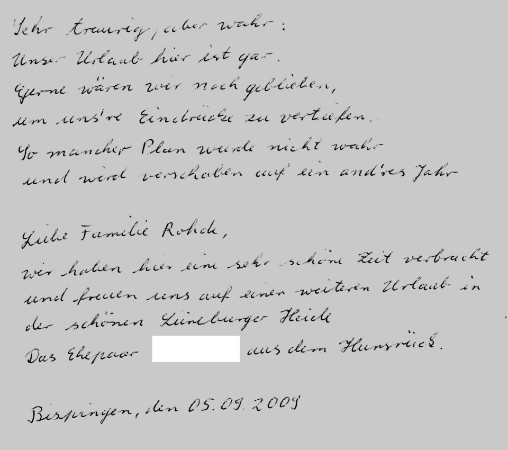 Sehr traurig, aber wahr:
Unser Urlaub hier ist gar.
Gerne wären wir noch geblieben,
um uns're Eindrücke zu vertiefen.
So mancher Plan wurde nicht wahr
und wird verschoben auf ein and'res Jahr
Liebe Familie Rohde,
wir haben hier eine sehr schöne Zeit verbracht
und freuen uns auf einen weiteren Urlaub in
der schönen Lüneburger Heide
Das Ehepaar aus dem Hunsrück.
Bispingen, den 05.09.2009